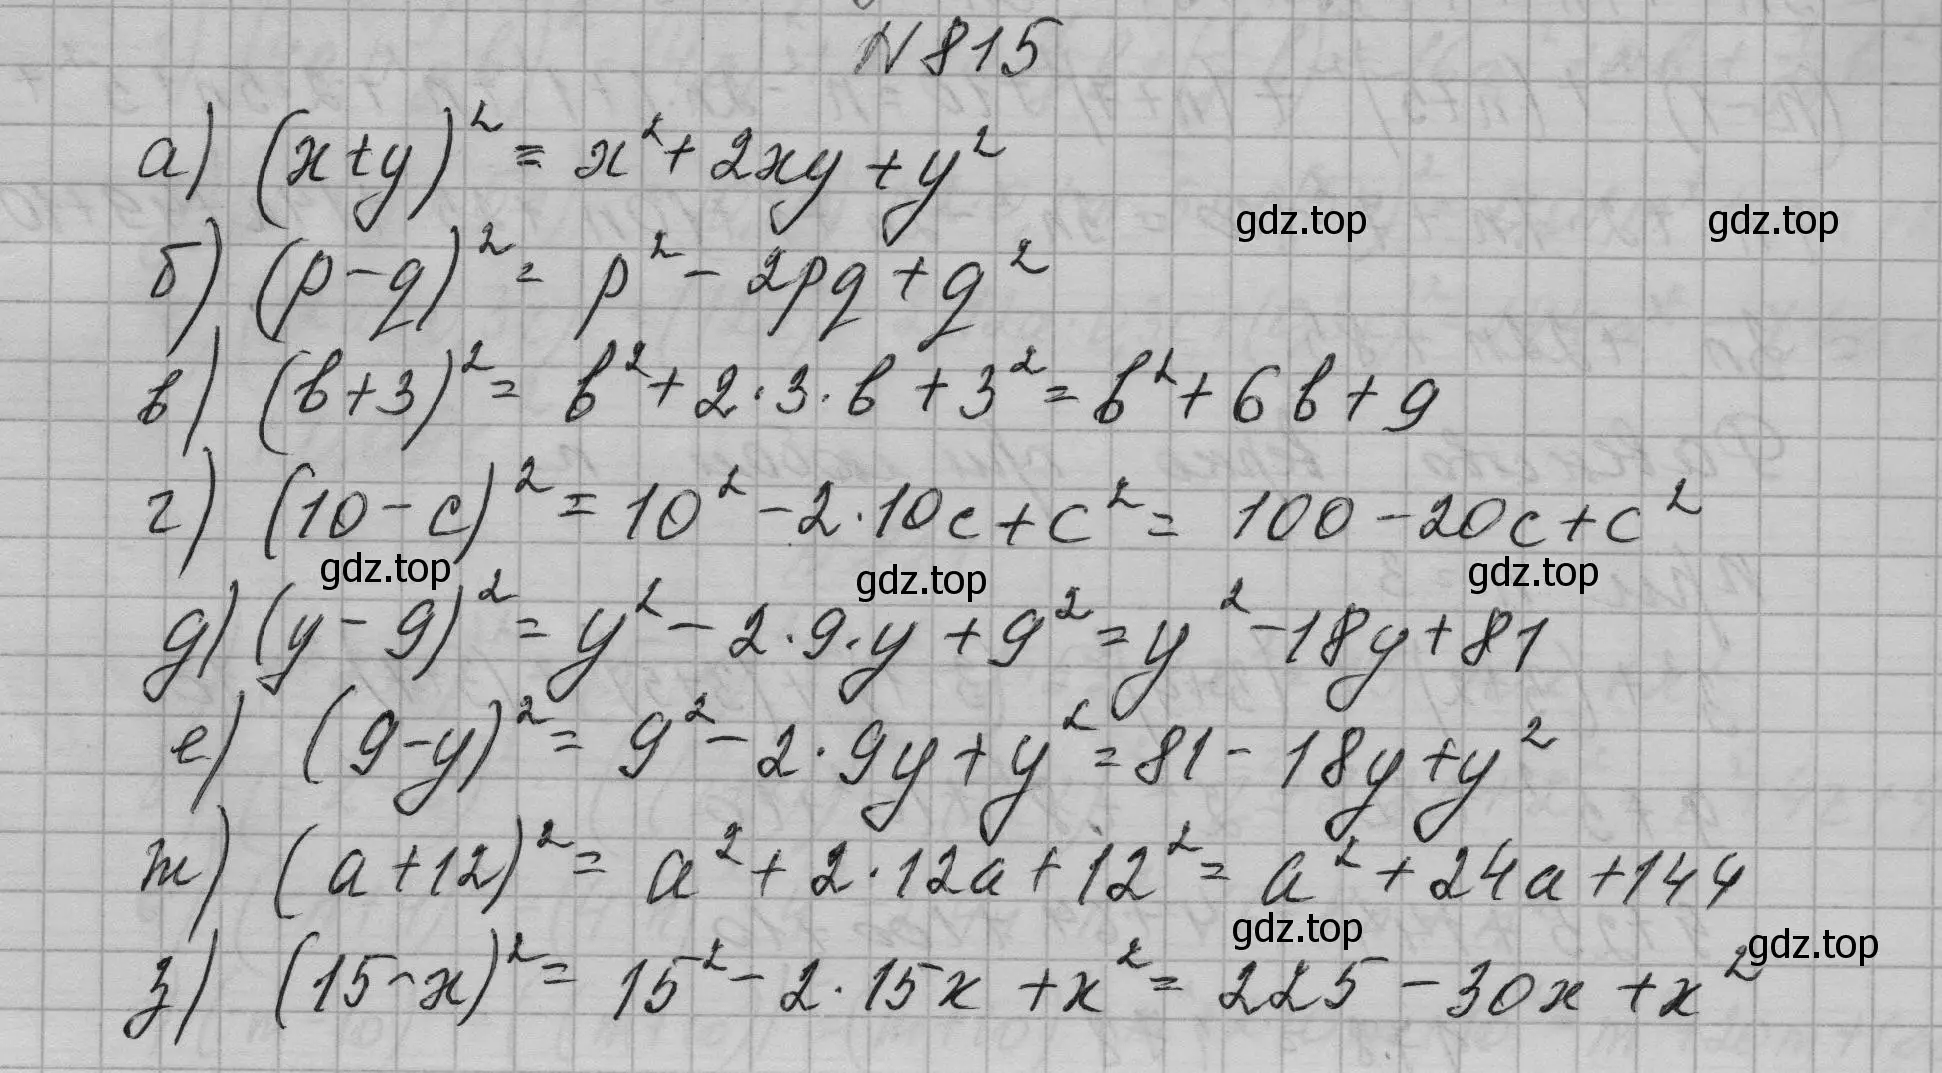 N 815
а) (x+y)² = x² + 2xy + y²
gdz.top gdz.top
б) (p-q)² = p² - 2pq + q²
в) (b+3)² = b² + 2·3·b + 3² = b² + 6b + 9
г) (10-c)² = 10² - 2·10c + c² = 100 - 20c + c²
gdz.top gdz.top gdz.top
д) (y-9)² = y² - 2·9·y + 9² = y² - 18y + 81
е) (9-y)² = 9² - 2·9y + y² = 81 - 18y + y²
ж) (a+12)² = a² + 2·12a + 12² = a² + 24a + 144
gdz.top gdz.top
з) (15-x)² = 15² - 2·15x + x² = 225 - 30x + x²